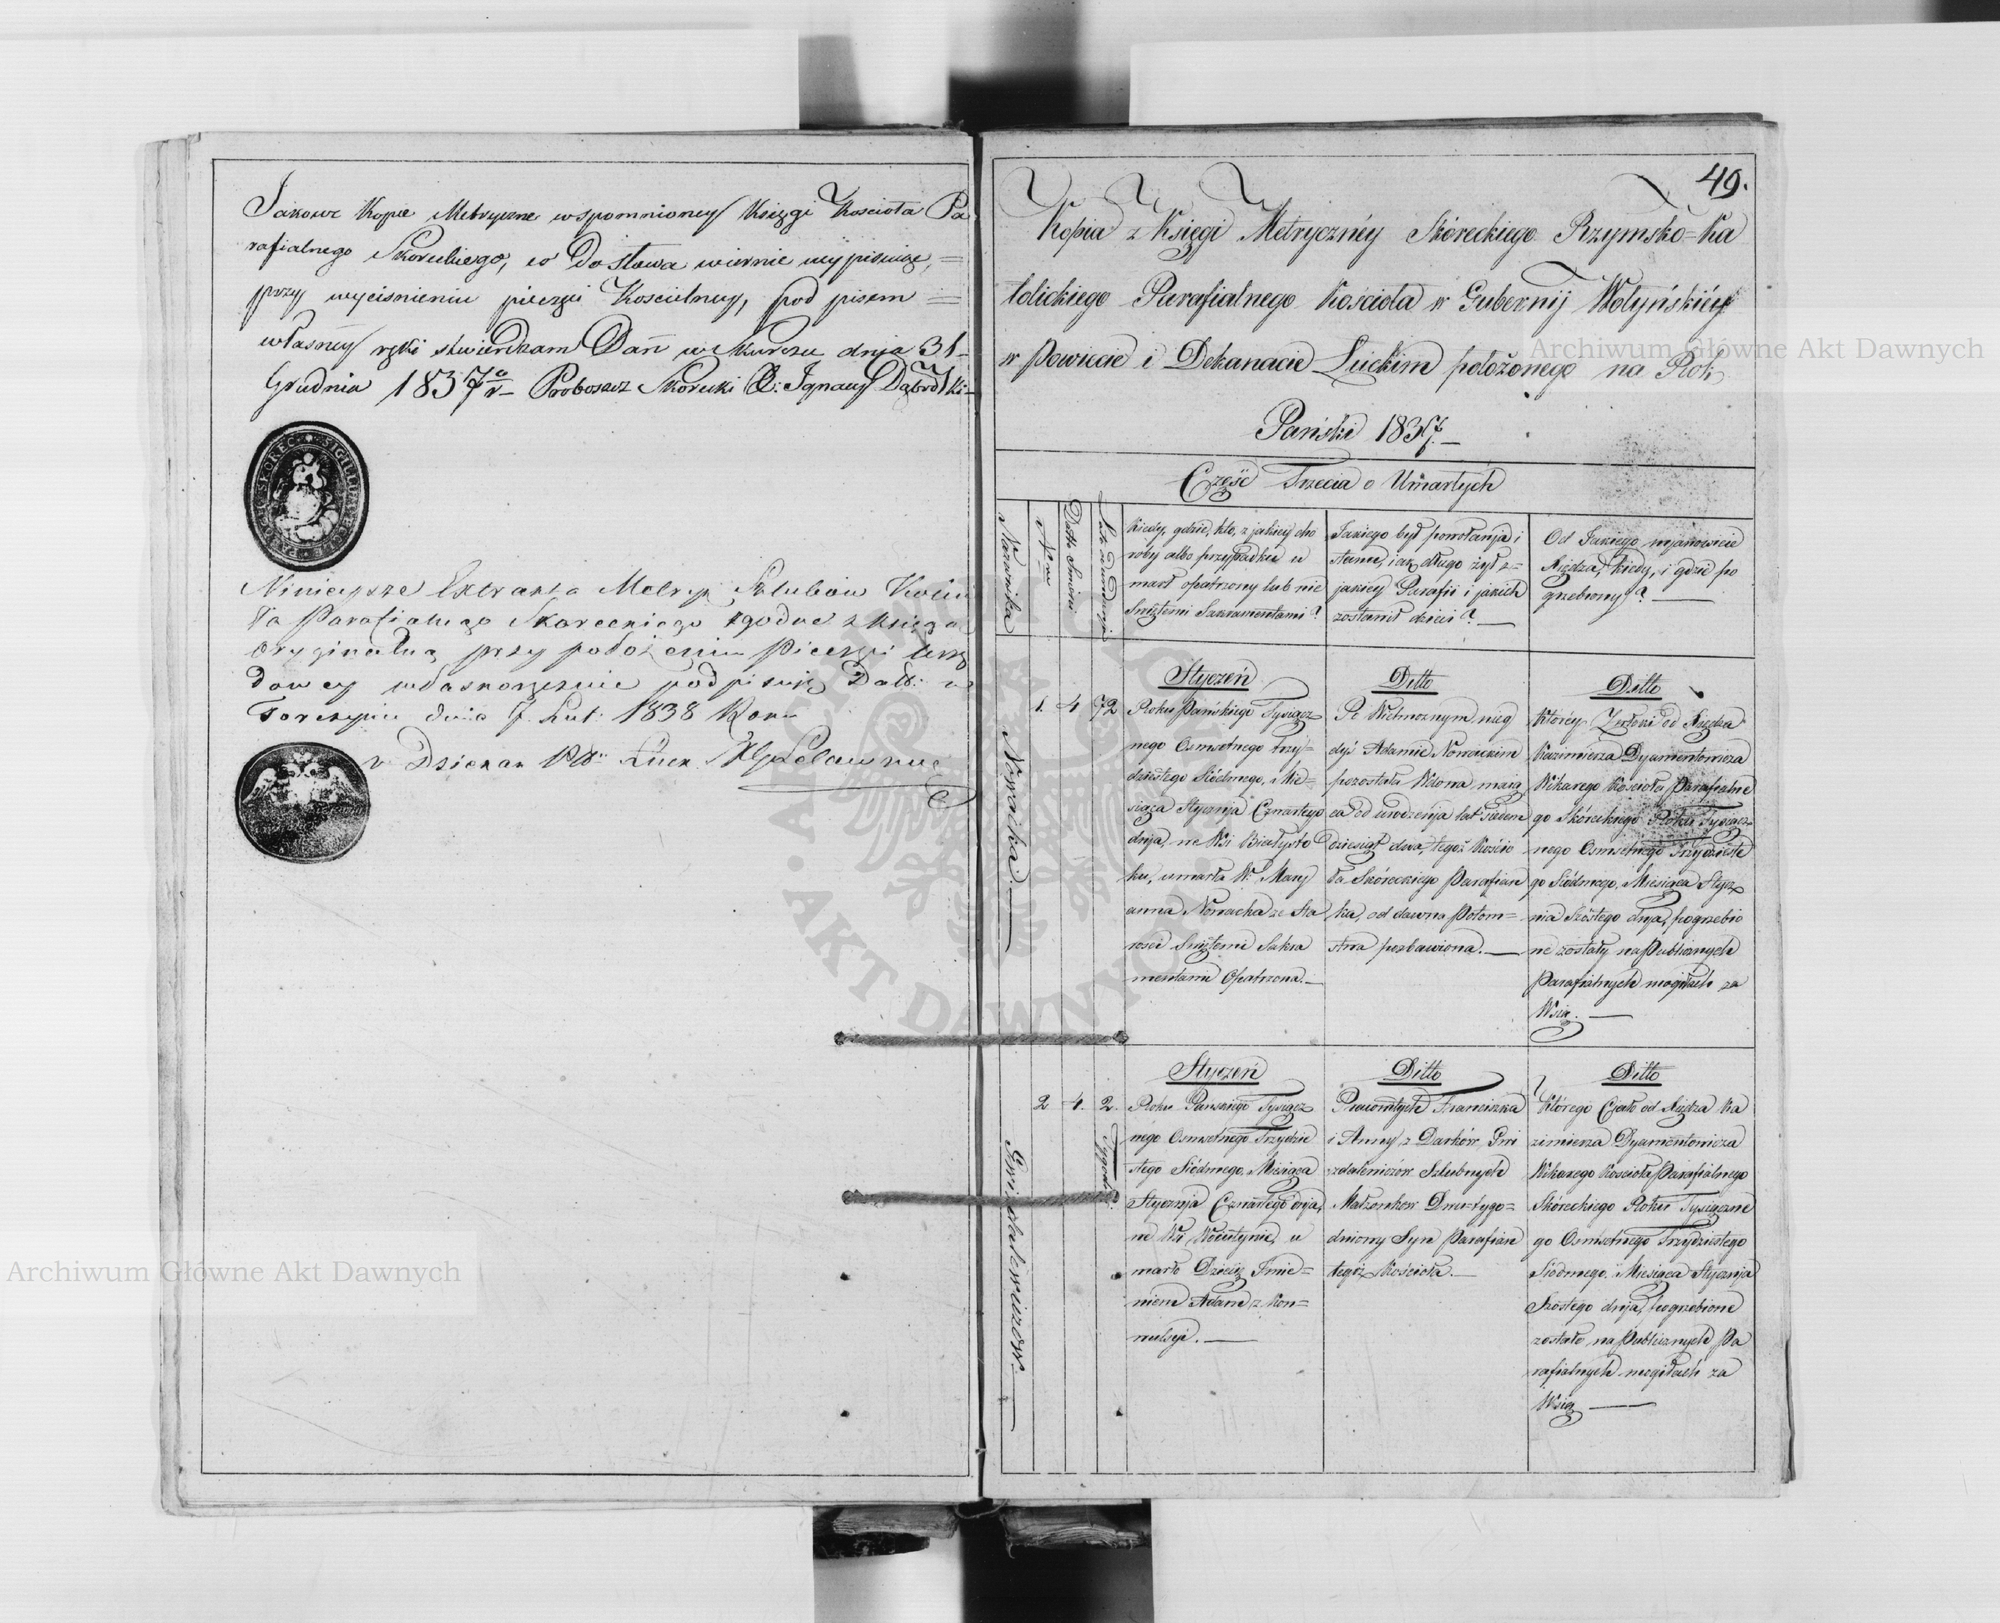 Jakowe Kopie Metryczne wspomnioney Księgi Kościoła Pa
rafialnego Skoreckiego, co Do słowa wiernie wypisuję, =
przy wyciśnieniu pieczęci Koscielney, pod pisem =
własney ręki stwierdzam Dań w Skurczu dnia 31
Grudnia 1837 r Proboszcz Skorecki X: Ignacy Dąbrowski
Ninieysze Extrakta Metryk Szlubow Kościo
ła Parafialnego Skoreckiego zgodne z Księgą
Oryginalną przy położeniu Pieczęci Urzę
dowey własnoręcznie podpisuję Datt: w
Torczynie dnia 7 Lut: 1838 Roku
v Dziekan Łuck
49.
Kopia z Księgi Metrycznéy Skóreckiego Rzymsko=Ka
tolickiego Parafialnego Kościoła w Gubernij Wołyńskiéy
w Powiecie i Dekanacie Łuckim położonego na Rok
Pański 1837.
Część Trzecia o Umarłych
Nazwiska
Nr
Data Smierci
Lata od urodzenia
Kiedy, gdzie, kto, z jakiey cho
roby albo przypadku u
marł opatrzony lub nie
Swiętemi Sakramentami?
Jakiego był powołanja i
stanu, i jak długo żył z=
jakiey Parafii i jakich
zostawił dzieci?
Od Jakiego mjanowicie
Xiędza, kiedy, i gdzie po
grzebiony?
Nowacka.
1. 4 72
Styczeń
Roku Pańskiego Tysiącz
nego Osmsetnego Trzy=
dziestego Siódmego, Mie=
siąca Stycznja Czwartego
dnja, we Wsi Białysto
ku, umarła W. Mary
anna Nowacka ze Sta
rosci Swiętemi Sakra
mentami Opatrzona.
Ditto
Po Wielmożnym nieg
dyś Adamie Nowackim
pozostała Wdowa mają
ca od urodzenja lat siedem
dziesiąt dwa, tegoż Kościo
ła Skóreckiego Parafian
ka, od dawna Potom=
stwa pozbawiona.
Ditto
Którey Zwłoki od Xiędza
Kazimierza Dyamentowicza
Wikarego Kościoła Parafialne
go Skóreckiego Roku Tysiącz
nego Osmsetnego Trzydzieste
go Siódmego, Miesiąca Stycz
nia Szóstego dnja, pogrzebio
ne zostały na Publicznych
Parafialnych mogiłach za
Wsią.
Gwizdalewiczow.
2 4. 2. Tygodni.
Styczeń
Roku Pańskiego Tysiącz
nego Osmsetnego Trzydzie
stego Siódmego, Miesiąca
Stycznja Czwartego dnja,
we Wsi Woiutynie, u
marło Dziecię Imie=
niem Adam z Kon=
wulsyi.
Ditto
Pracowitych Franciszka
i Anny z Darków Gwi
zdalewiczów Szlubnych
Małżonkow Dwu=tygo=
dniowy Syn Parafian
tegoż Kościoła.
Ditto
Którego Cjało od Xiędza Ka
zimierza Dyamentowicza
Wikarego Kościoła Parafialnego
Skóreckiego Roku Tysiączne
go Osmsetnego Trzydziestego
Siódmego, Miesiąca Stycznja
Szóstego dnja, pogrzebione
zostało na Publicznych Pa
rafialnych mogiłach za
Wsią
Archiwum Główne Akt Dawnych
Archiwum Główne Akt Dawnych